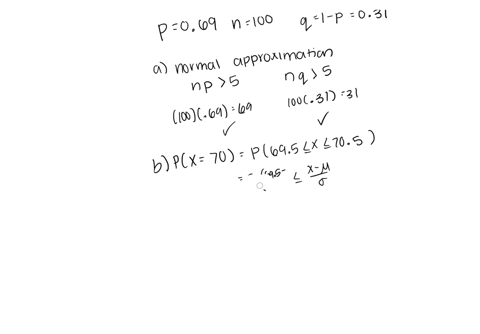 p=0.69 n=100 q=1-p=0.31
a) normal approximation
np>5 nq>5
(100)(.69)=69 100(.31)=31
✓ ✓
b) P(x=70) = P(69.5≤x≤70.5)
= ≤ x-μ/σ